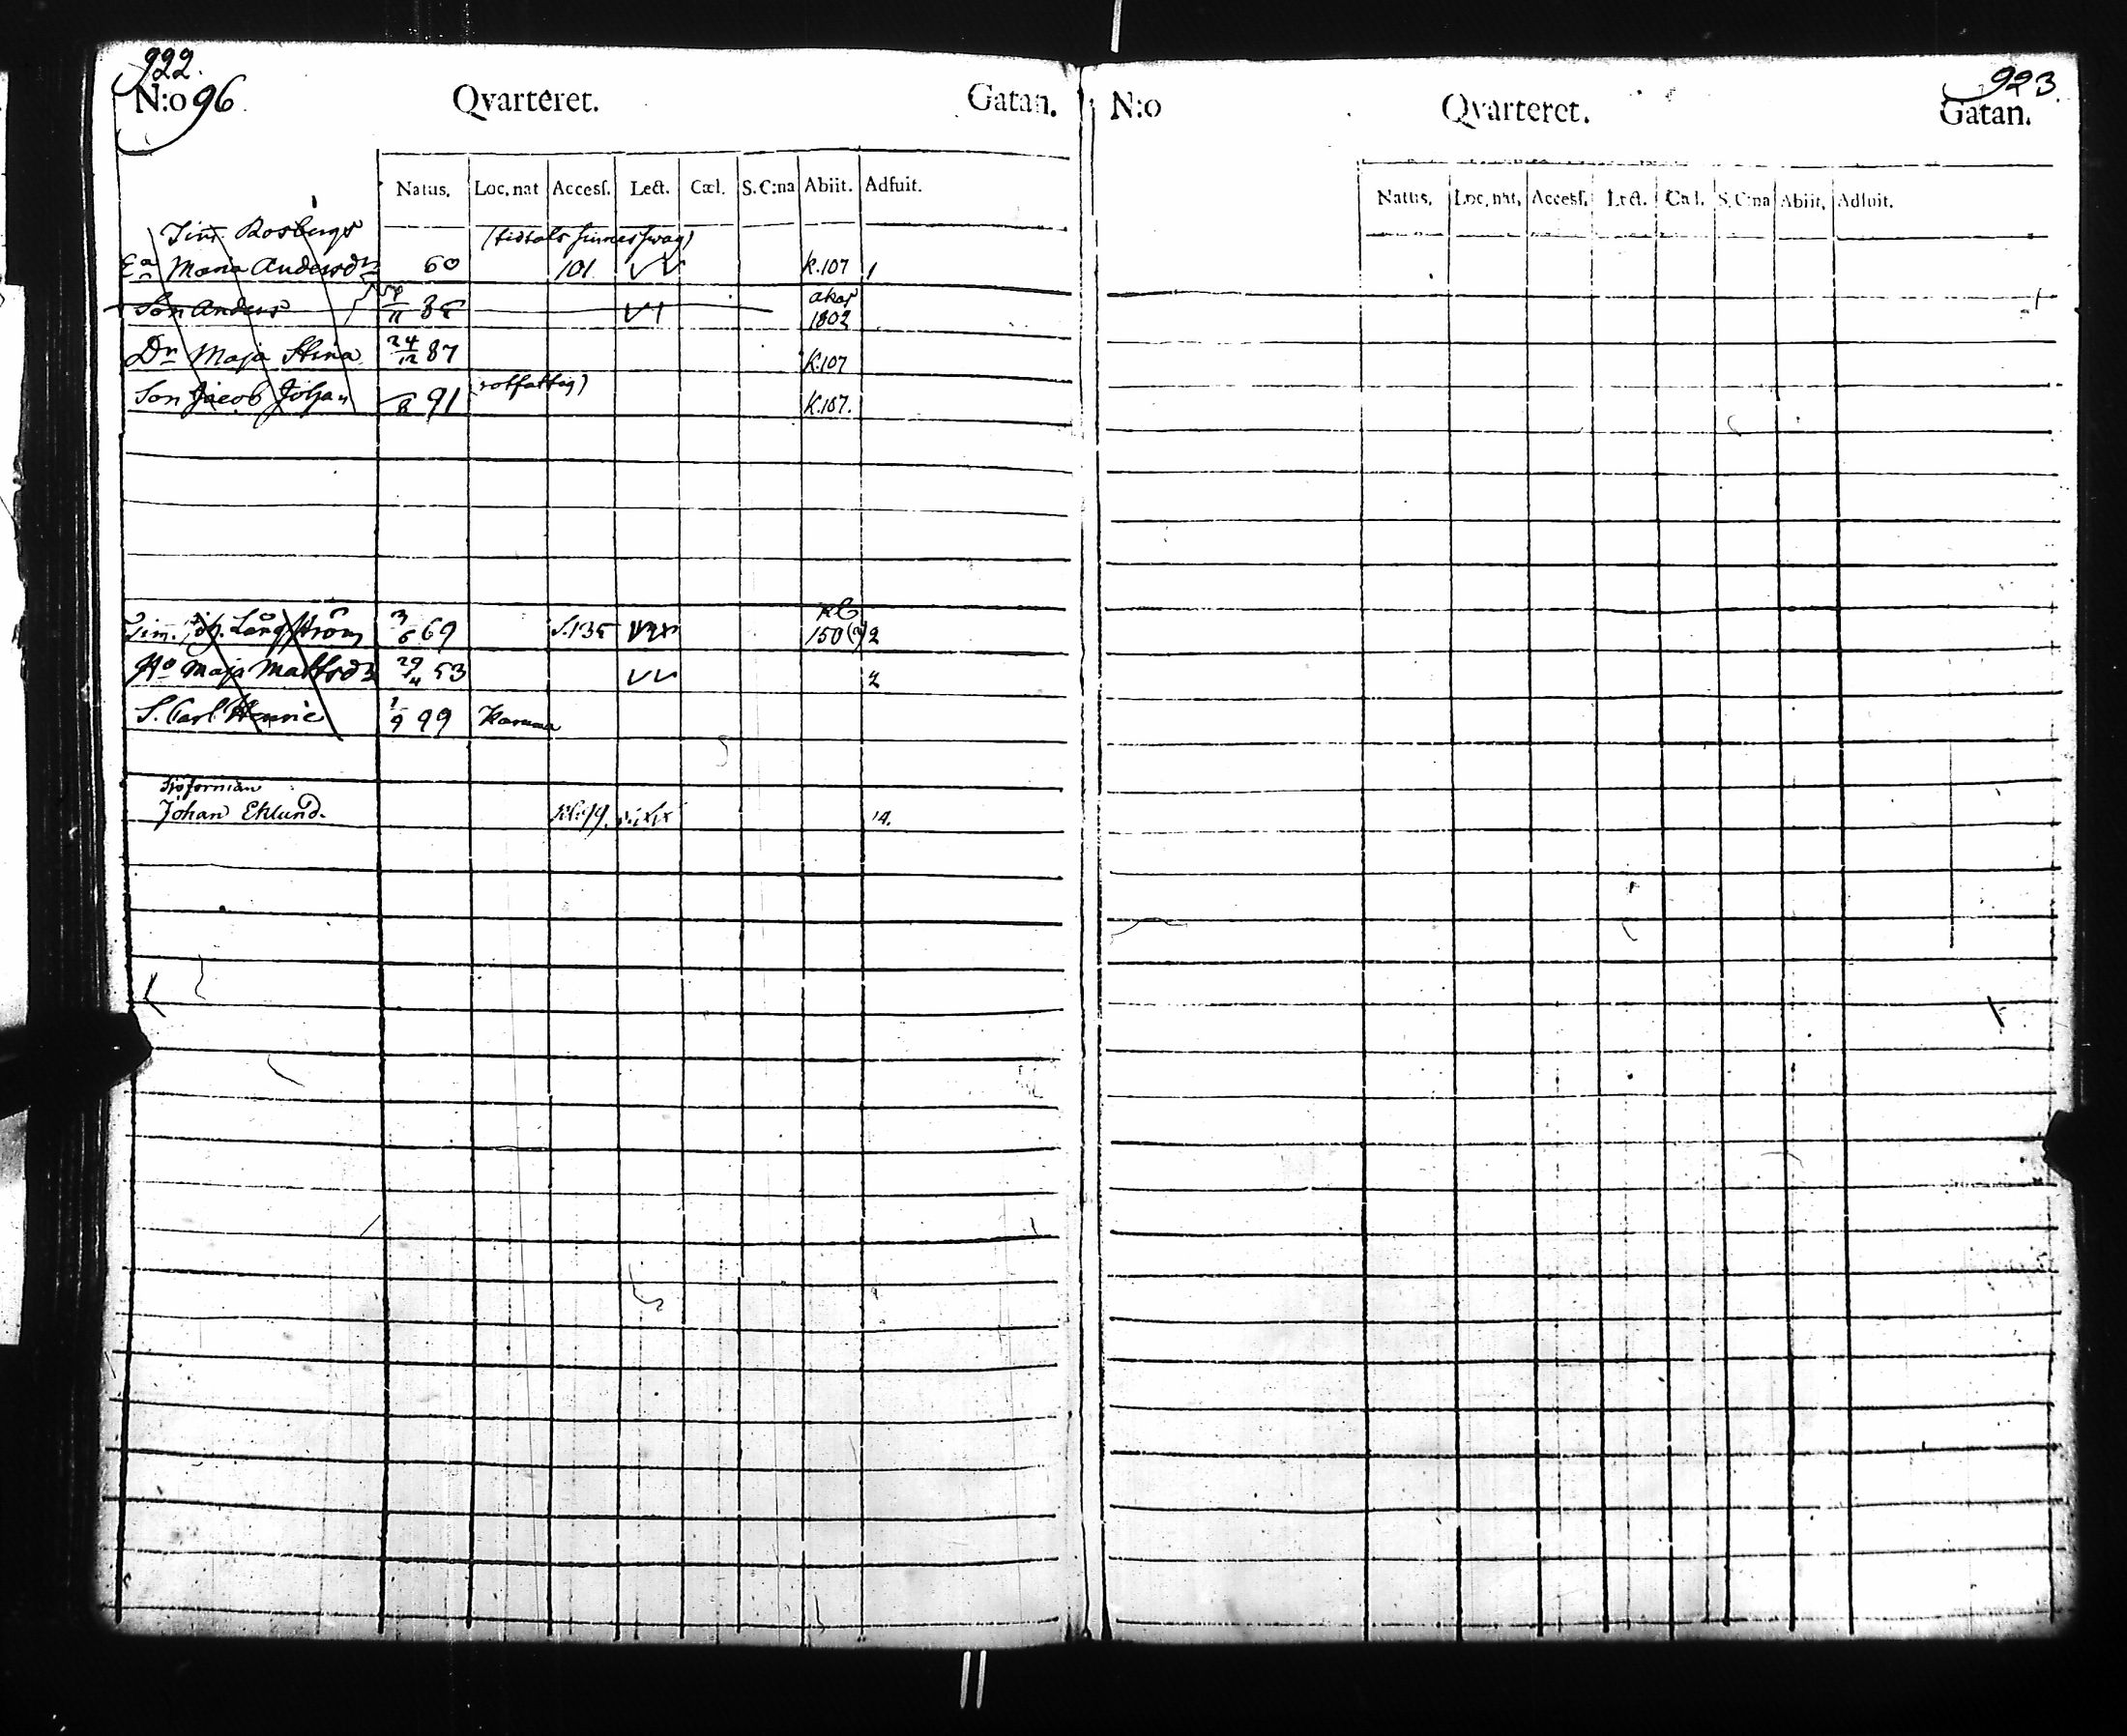 922.
N:o 96 Qvarteret. Gatan.
Natus. Loc. nat Accesſ. Lect. Cæl. S. C:na Abiit. Adfuit.
Tim. Rosbergs
Ea Maria Andersdr 60 101 K.107 1
Son Anders 11 1802
Dr Maja Stina 24/12 87 K.107
(rotfattig)
Son Jacob Johan 8 91 K.107.
Tim. Joh. Långström 3/6 69 S.135 150 2
Ho Maja Mattsdr 29/4 53 2
S. Carl Henric 1/9 99
Johan Eklund.
923.
N:o Qvarteret. Gatan.
Natus. Loc. nat. Accesſ. Lect. Cæl. S. C:na Abiit. Adfuit.